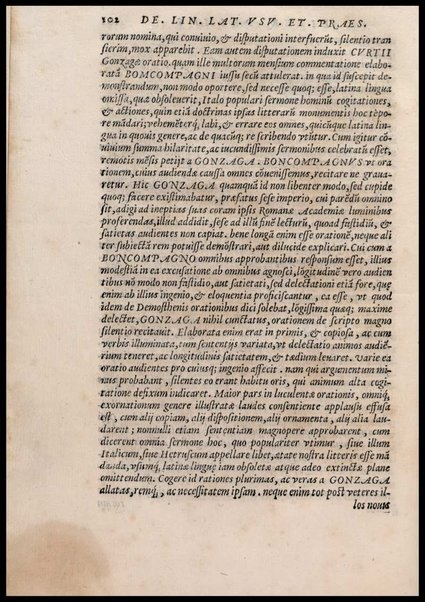 102 DE. LIN. LAT. VSV. ET. PRAES.
rorum nomina, qui conuiuio, & disputationi interfuerũt, silentio tran
sierim, mox apparebit. Eam autem disputationem induxit CVRTII
Gonzagæ oratio. quam ille multorum mensium commentatione elabo
ratã BOMCOMPAGNI iussu secũ attulerat. in qua id suscepit de
mõstrandum, non modo oportere, sed necesse quoq; esse, latina lingua
omissa, quæ obsoleuerit, Italo populari sermone hominũ cogitationes,
& actiones, quin etiã doctrinas ipsas litterarũ monumentis hoc tẽpo
re mãdari; vehemẽterq́; labi, & errare eos omnes, quicũque latina lin
gua in quouis genere, ac de quacũq; re scribendo vtũtur. Cum igitur cõ
uiuium summa hilaritate, ac iucundissimis sermonibus celebratũ esset,
remotis mẽsis petijt a GONZAGA. BONCOMPAGNVS vt ora
tionem, cuius audiendæ caussa omnes cõuenissemus, recitare ne graua
retur. Hic GONZAGA quamquã id non libenter modo, sed cupide
quoq; facere existimabatur, præfatus sese imperio, cui parẽdũ omnino
sit, adigi ad ineptias suas coram ipsis Romanæ Academiæ luminibus
proferendas, illud addidit, sese ad illũ finẽ lecturũ, quoad fastidiũ, &
satietas audientes non capiat. bene longã enim esse orationẽ, neque ali
ter subiectã rem potuisse demõstrari, aut dilucide explicari. Cui cum a
BONCOMPAGNO omnibus approbantibus responsum esset, illius
modestiã in ea excusatione ab omnibus agnosci, lõgitudinẽ vero audien
tibus nõ modo non fastidio, aut satietati, sed delectationi etiã fore, quæ
enim ab illius ingenio, & eloquentia proficiscantur, ea esse, vt quod
idem de Demosthenis orationibus dici solebat, lõgissima quæq; maxime
delectet, GONZAGA nihil cunctatus, orationem de scripto magno
silentio recitauit. Elaborata enim erat in primis, & copiosa, ac cum
verbis illuminata, tum sententijs variata, vt delectatio animos audiẽ-
rium teneret, ac longitudinis satietatem, & tædium leuaret. Varie ea
oratio audientes pro cuiusq; ingenio affecit. nam qui argumentum mi-
nus probabant, silentes eo erant habitu oris, qui animum alta cogi
tatione defixum indicaret. Maior pars in luculentæ orationis, omniq́;
exornationum genere illustratæ laudes consentiente applausu effusa
est, cum alij copiam, alij dispositionem, alij ornamenta, alij alia lau-
darent; nonnulli etiam sententiam magnopere approbarent, cum
dicerent omnia sermone hoc, quo populariter vtimur, siue illum
Italicum, siue Hetruscum appellare libet, ætate nostra litteris esse mã
danda, vsumq́; latinæ linguę iam obsoletæ atque adeo extinctæ plane
omittendum. Cogere id rationes plurimas, ac veras a GONZAGA
allatas, remq́;, ac necessitatem ipsam. neque enim tot post veteres il-
los nouis